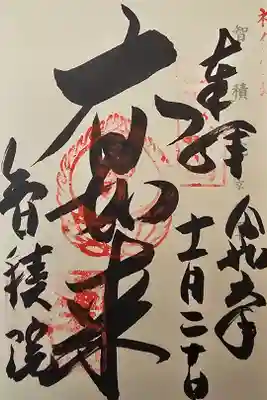 奉拝
令和
十一月二十日
大日如来
智積院
智積